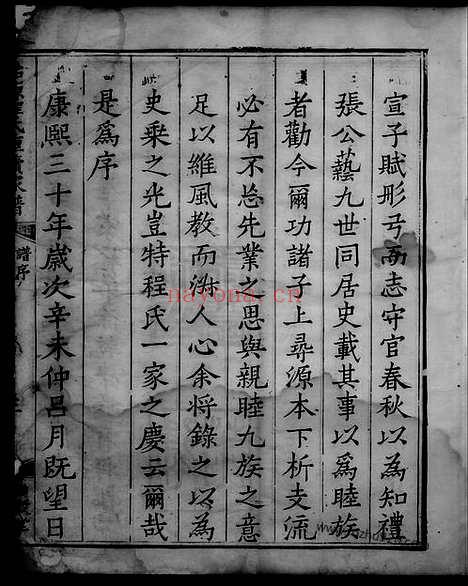 宣子賦形弓而志守官春秋以為知禮
張公藝九世同居史載其事以為睦族
者勸今爾功諸子上尋源本下析支流
必有不忘先業之思與親睦九族之意
足以維風教而淑人心余將錄之以為
史乘之光豈特程氏一家之慶云爾哉
是為序
康熙三十年歲次辛未仲呂月既望日
家譜
譜序
nayona.cn